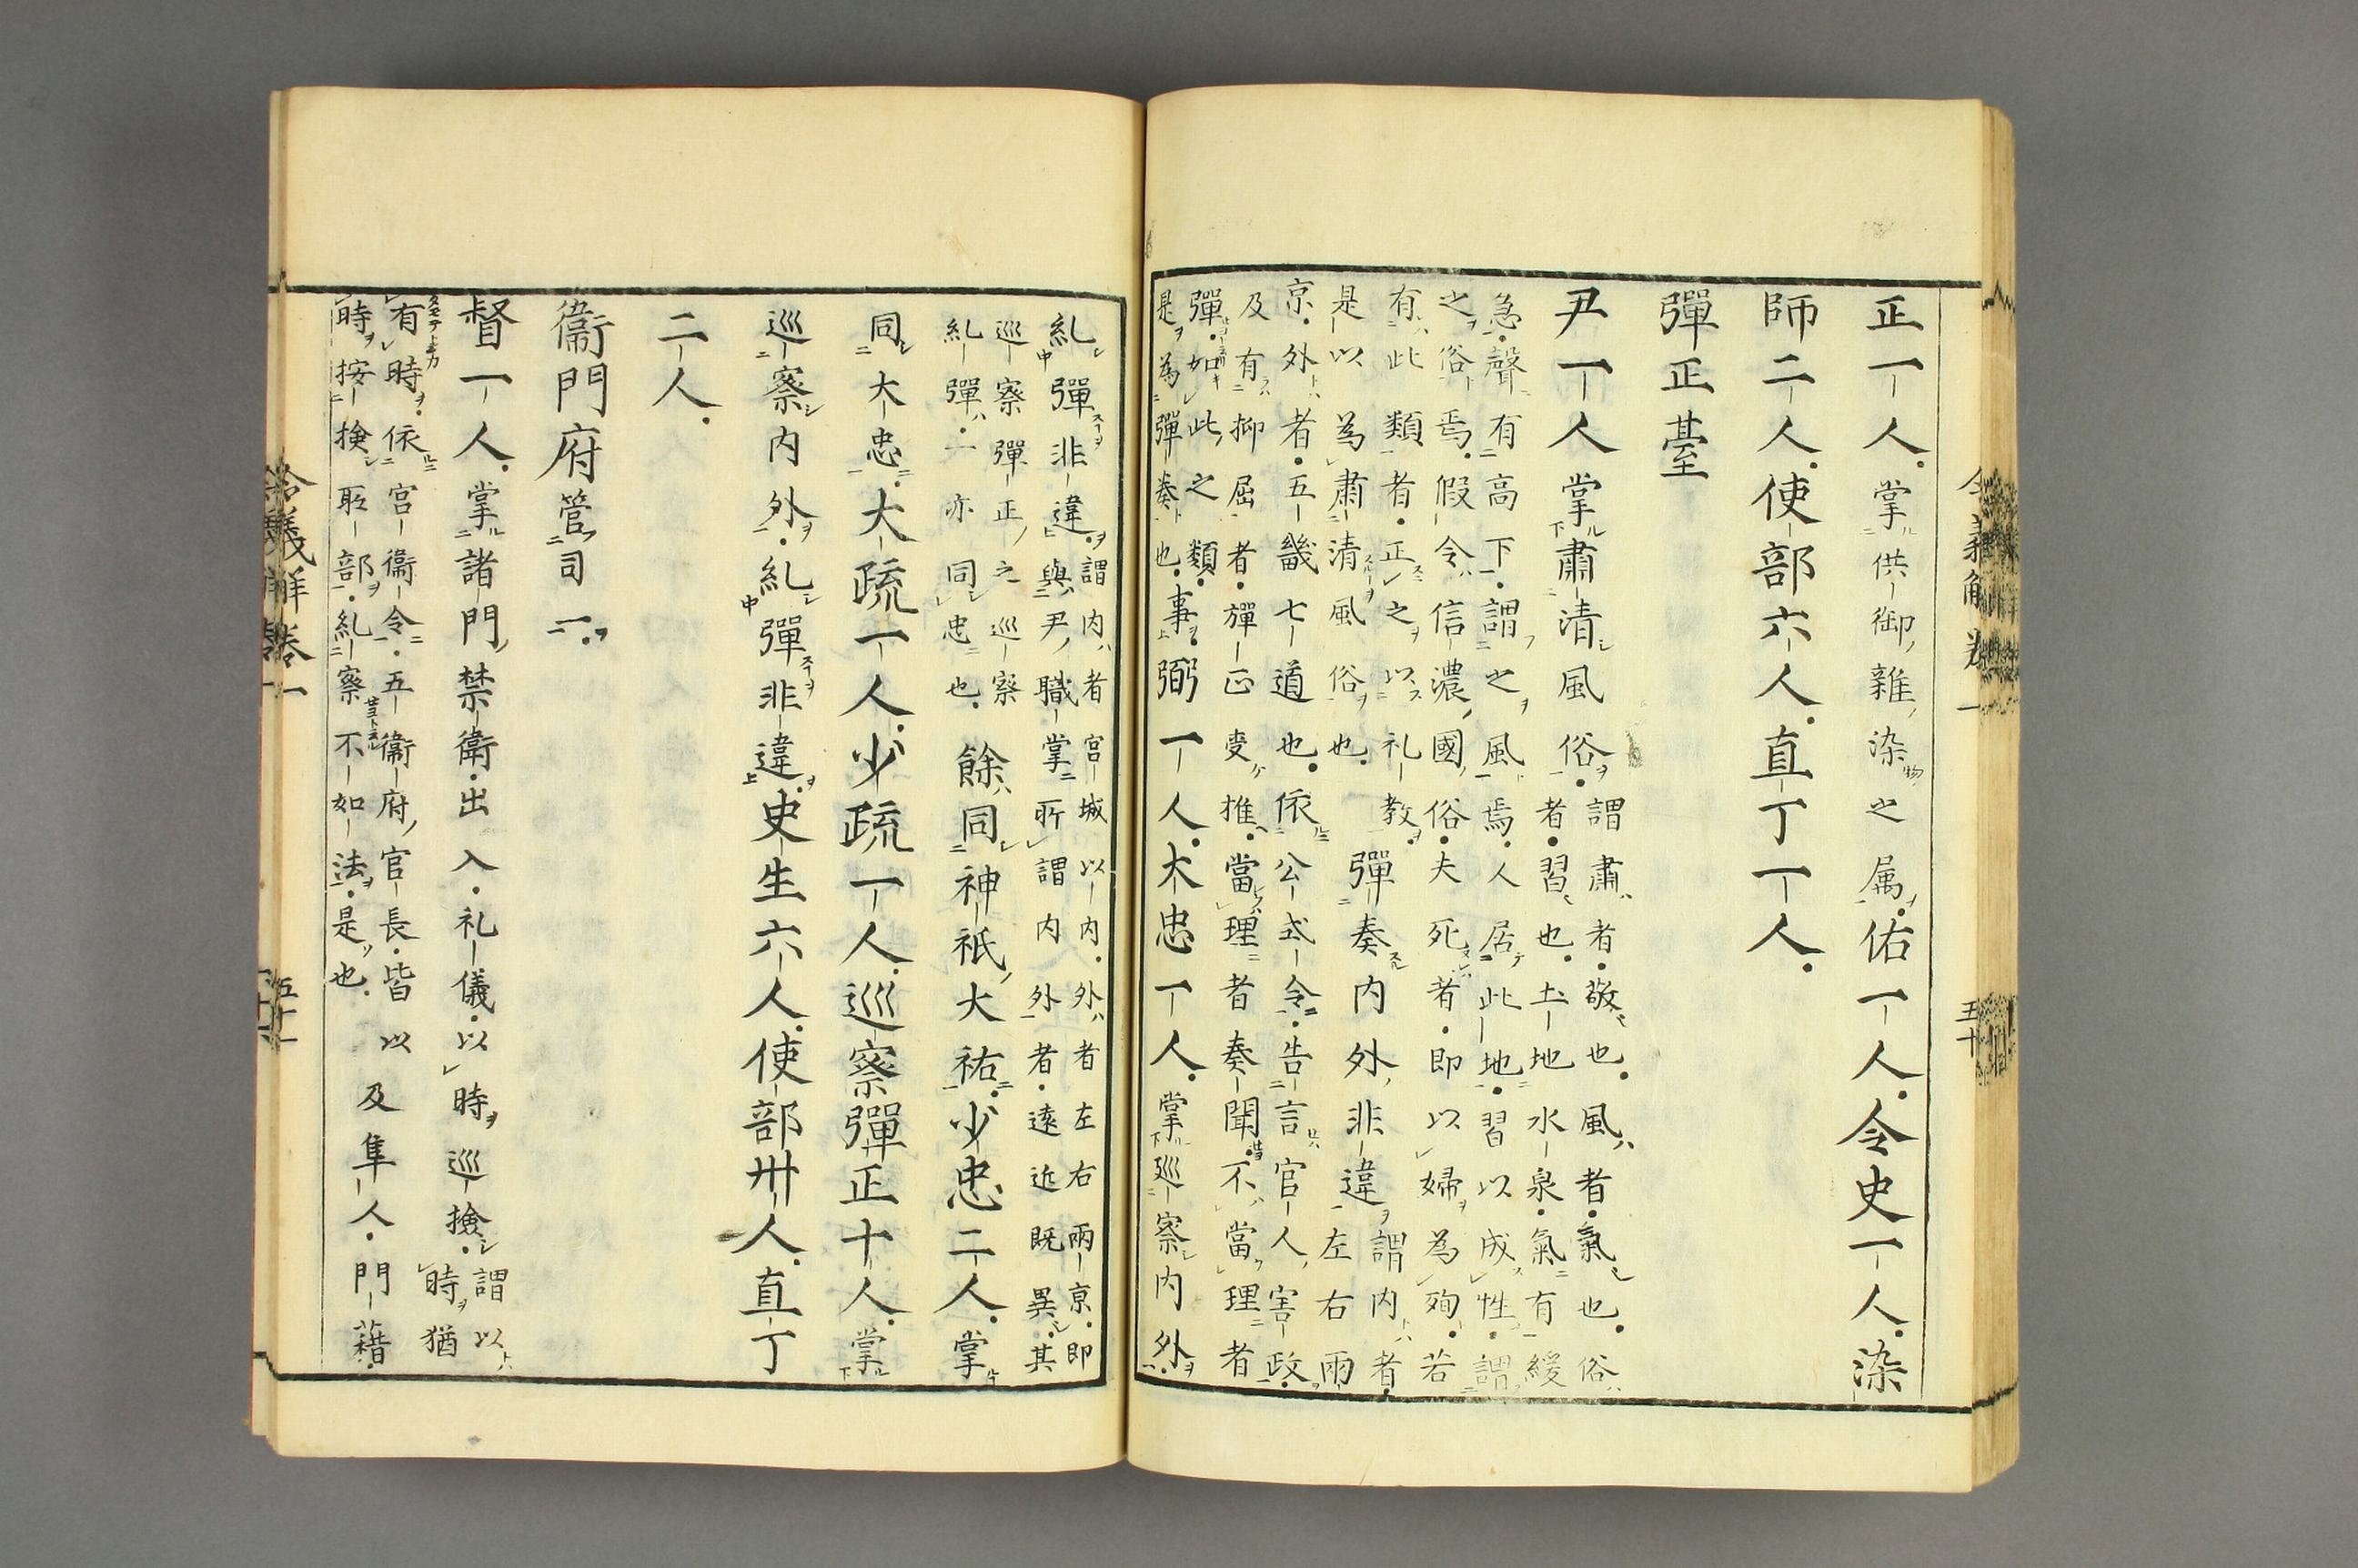 正一人掌供御雑染之属佑一人令史一人染
師二人使部六人直丁一人
彈正臺
尹一人掌肅清風俗
謂肅者敬也風者氣也俗
者習也土地水泉氣有緩
急聲有高下謂之風焉人居此地習以成性謂
之俗焉假令信濃國俗夫死者即以婦為殉若
有此類者正之以礼教
是以為肅清風俗也
彈奏内外非違
謂内者
左右兩
京外者五畿七道也依公式令告言官人害政
及有抑屈者彈正受推當理者奏聞不當理者
彈如此之類
是為彈奏也
事弼一人大忠一人掌巡察内外
糺彈非違
謂内者宮城以内外者左右兩京即
與尹職掌所謂内外者遠近既異其
巡察彈正之巡察
糺彈亦同忠也
餘同神祇大祐少忠二人掌
同大忠大疏一人少疏一人巡察彈正十人掌
巡察内外糺彈非違史生六人使部卅人直丁
二人
衞門府管司二
督一人掌諸門禁衛出入礼儀以時巡撿
謂以
時猶
有時依宮衞令五衞府官長皆以
時按撿所部糺察不如法是也
及隼人門藉
令義解卷一
五十
令義解卷一
五十一